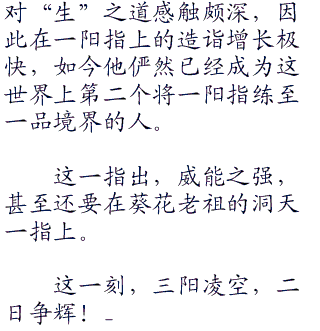 对“生”之道感触颇深，因
此在一阳指上的造诣增长极
快，如今他俨然已经成为这
世界上第二个将一阳指练至
一品境界的人。
这一指出，威能之强，
甚至还要在葵花老祖的洞天
一指上。
这一刻，三阳凌空，二
日争辉！